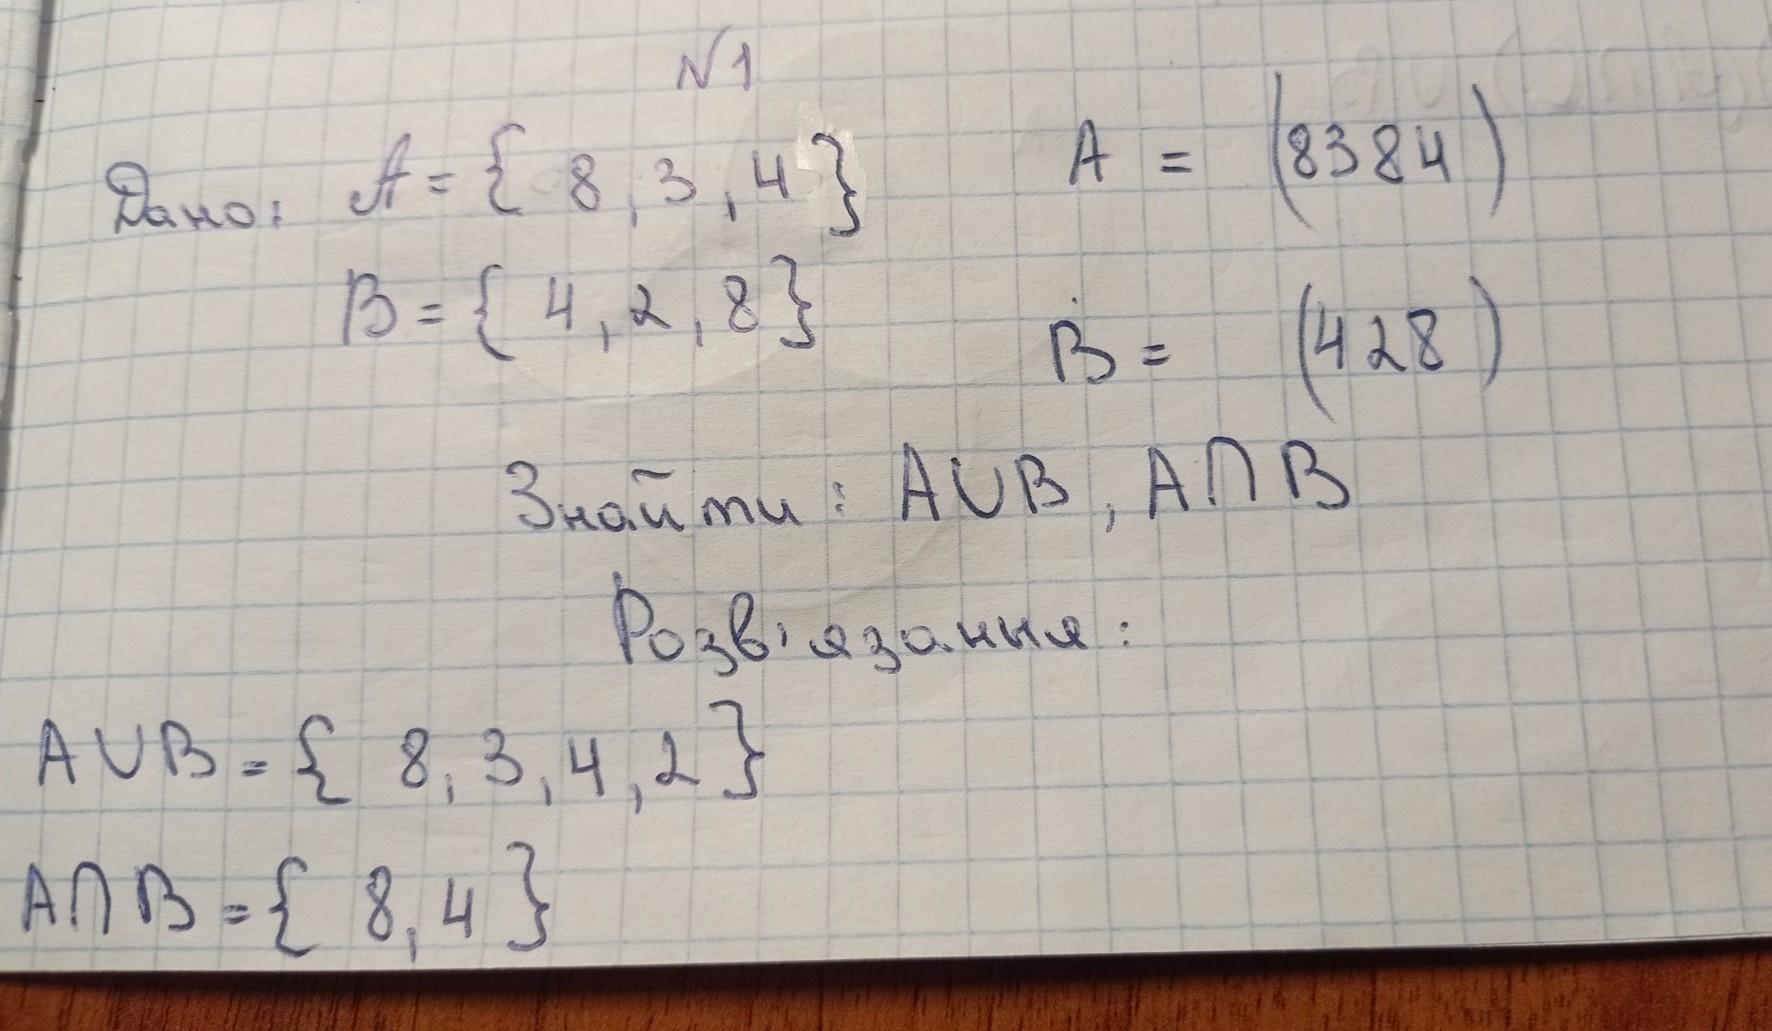 №1
Дано: A = { 8, 3, 4 } A = (8384)
B = { 4, 2, 8 } B = (428)
Знайти: A∪B, A∩B
Розв'язання:
A∪B = { 8, 3, 4, 2 }
A∩B = { 8, 4 }